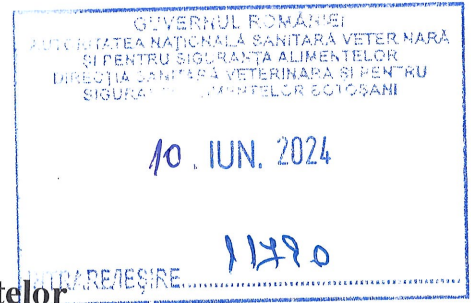 GUVERNUL ROMÂNIEI
AUTORITATEA NAȚIONALĂ SANITARĂ VETERINARĂ
ȘI PENTRU SIGURANȚA ALIMENTELOR
DIRECȚIA SANITARĂ VETERINARĂ ȘI PENTRU
SIGURANȚA ALIMENTELOR BOTOȘANI
10. IUN. 2024
11790
INTRARE/IEȘIRE
telor